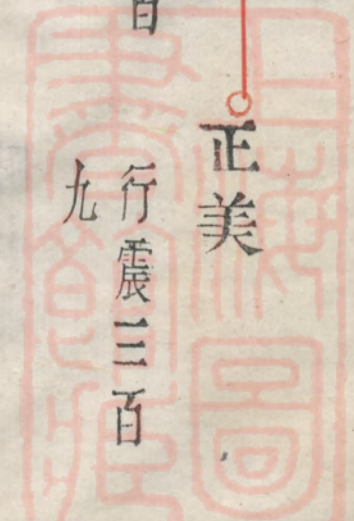 正美
行震三百
九
百